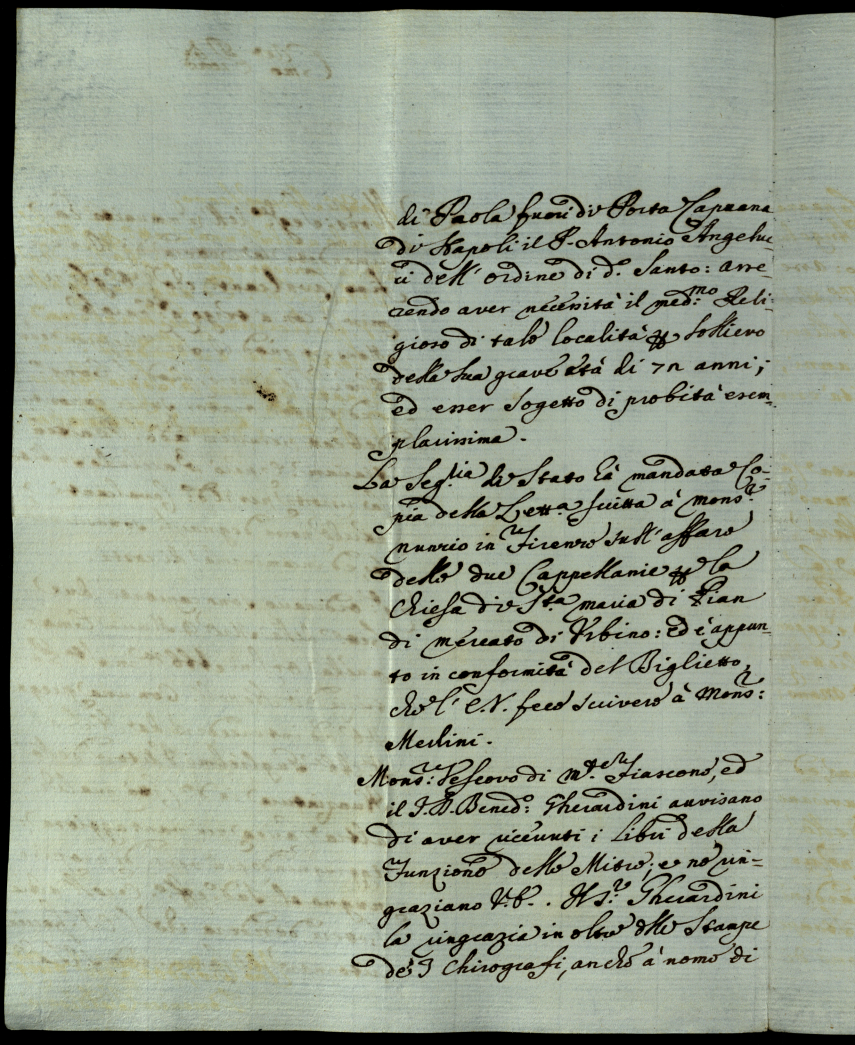 di Paola fuori di Porta Capuana
di Napoli il P. Antonio Angeluc-
ci dell' ordine di d.º Santo: asse-
rendo aver necessità il med.mo Reli-
gioso di tale località p sollievo
della sua grave età di 72 anni;
ed esser sogetto di probità esem-
plarissima.
La Seg.ria di Stato hà mandata Co-
pia della Lett.a scritta à Mons.r
Nunzio in Firenze sull' affare
delle due Cappellanie p la
Chiesa di S.ta Maria di Pian
di mercato di Urbino: ed è appun-
to in conformità del Biglietto,
che l' E.V. fece scrivere à Mons.r:
Merlini.
Mons.r: Vescovo di M.te Fiascone, ed
il P. Bened.º: Gherardini avvisano
di aver ricevuti i Libri della
Funzione delle Mitre; e ne rin-
graziano V.E. . Il S.r Gherardini
la ringrazia in oltre delle Stampe
de' 3 Chirografi, anche à nome di